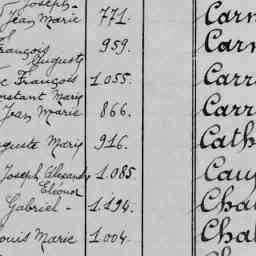 Joseph-
Jean Marie 771. Carn
François 959. Carn
Auguste
François 1.055. Carr
Constant Marie
Jean Marie 866. Carr
Auguste Marie 916. Cath
Joseph Alexandre 1.085. Cau
Eléonor
Gabriel - 1.194. Chal
Louis Marie 1.004. Chal